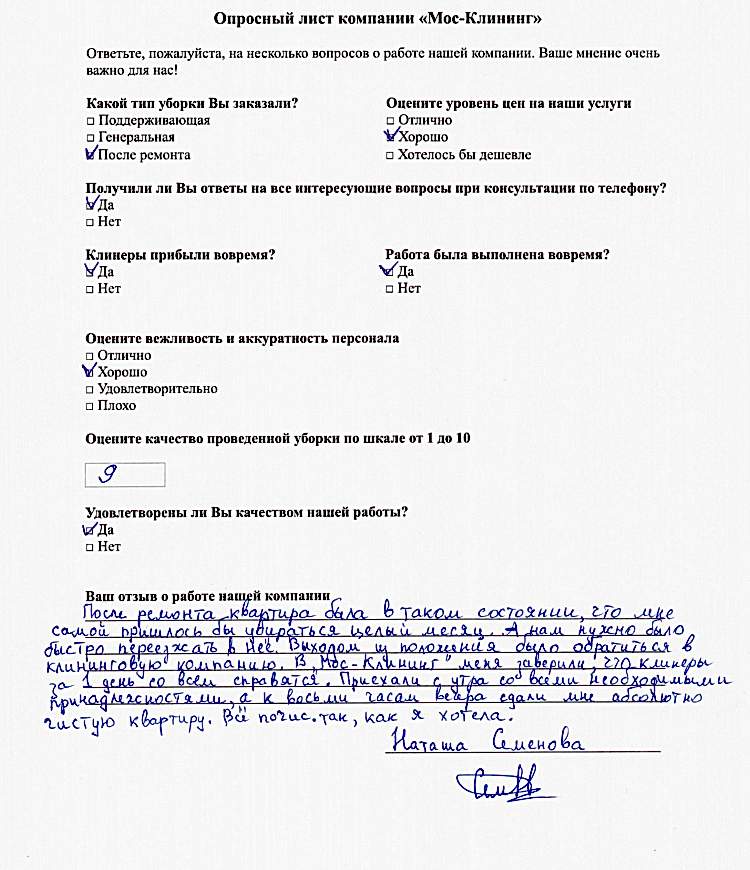 Опросный лист компании «Мос-Клининг»
Ответьте, пожалуйста, на несколько вопросов о работе нашей компании. Ваше мнение очень
важно для нас!
Какой тип уборки Вы заказали?
Поддерживающая
Генеральная
После ремонта
Оцените уровень цен на наши услуги
Отлично
Хорошо
Хотелось бы дешевле
Получили ли Вы ответы на все интересующие вопросы при консультации по телефону?
Да
Нет
Клинеры прибыли вовремя?
Да
Нет
Работа была выполнена вовремя?
Да
Нет
Оцените вежливость и аккуратность персонала
Отлично
Хорошо
Удовлетворительно
Плохо
Оцените качество проведенной уборки по шкале от 1 до 10
9
Удовлетворены ли Вы качеством нашей работы?
Да
Нет
Ваш отзыв о работе нашей компании
После ремонта квартира была в таком состоянии, что мне
самой пришлось бы убираться целый месяц. А нам нужно было
быстро переезжать в неё. Выходом из положения было обратиться в
клининговую компанию. В „Мос-Клининг" меня заверили, что клинеры
за 1 день со всем справятся. Приехали с утра со всеми необходимыми
принадлежностями, а к восьми часам вечера сдали мне абсолютно
чистую квартиру. Всё почис. так, как я хотела.
Наташа Семенова